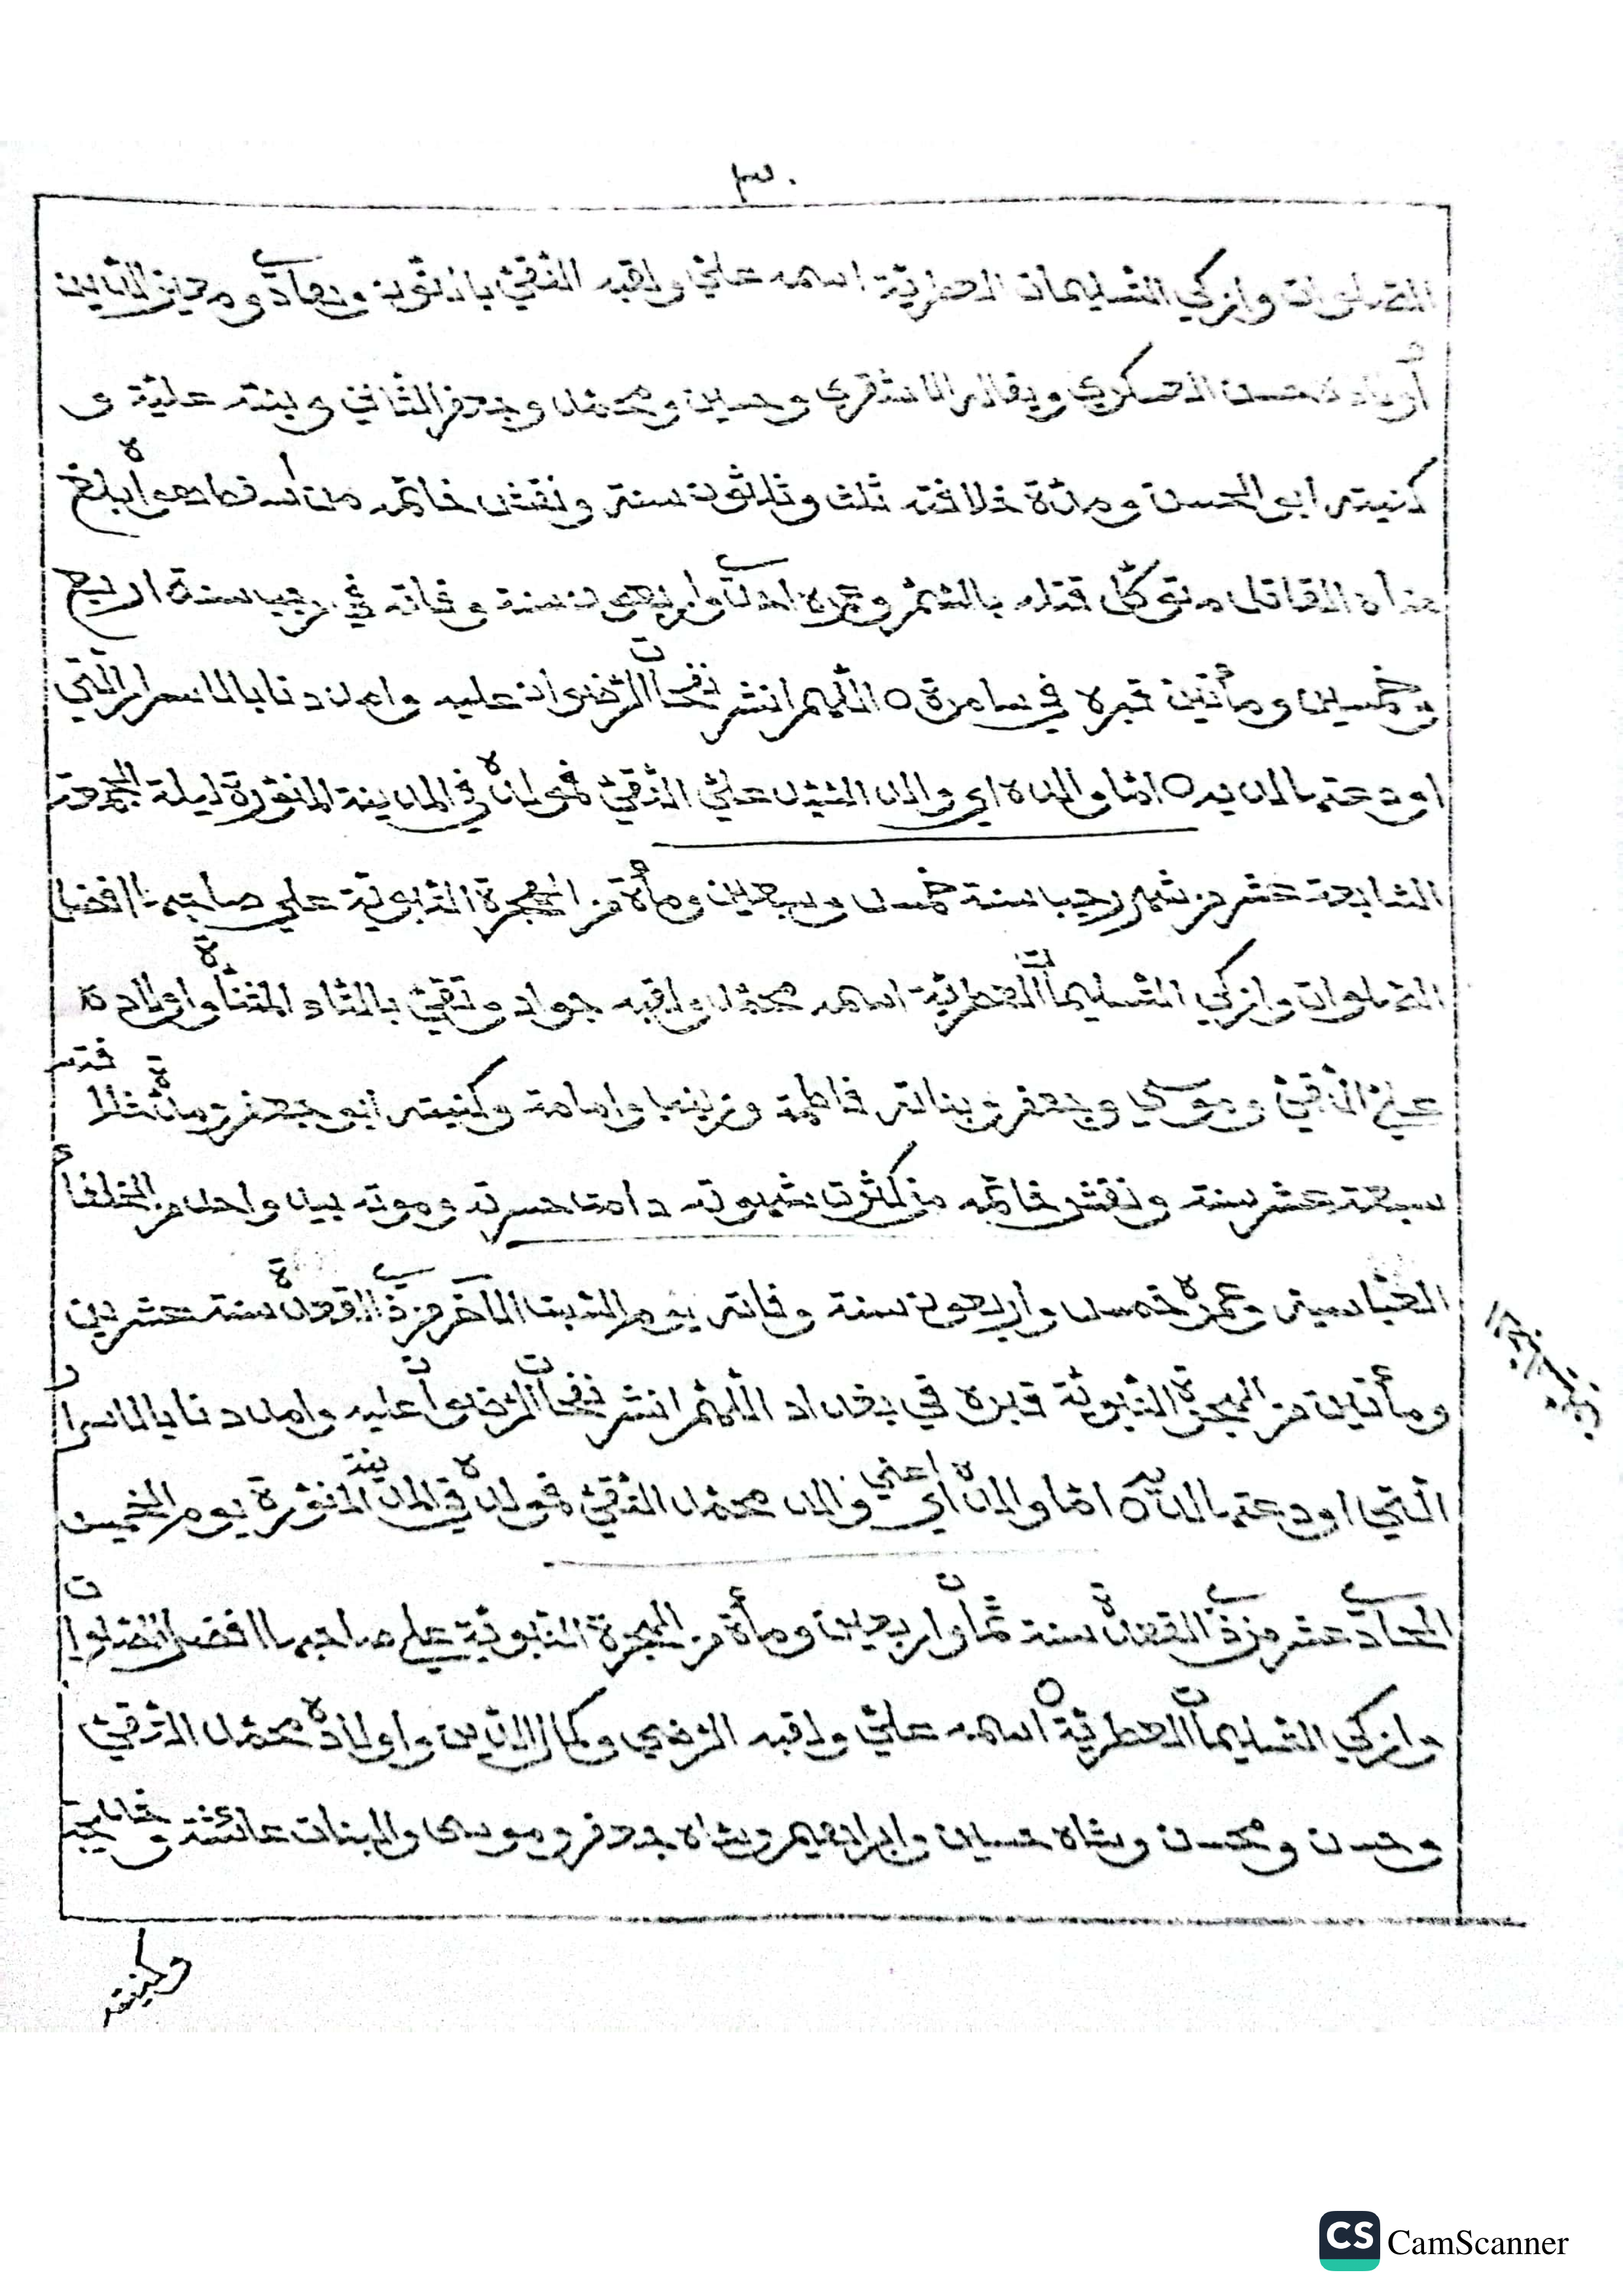 ٣٠
الصلوات وازكي التسليمات العطرية اسمه علي ولقبه النقي بالنون وهادي ومعيز الدين
أولاده حسن العسكري ويقال الاشقري وحسين ومحمد وجعفر الثاني وبنته علية و
كنيته ابو الحسن ومدة خلافته ثلث وثلاثون سنة ونقش خاتمه من
القاتل متوكل قتله بالسم وعمره احدي واربعون سنة وفاته في رجب سنة اربع
وخمسين ومأتين قبره في سامرة ه اللهم انشر نفحات الرضوان عليه وامددنا بالاسرار التي
اودعتها لديه ه اما والده اي والد السيد علي النقي فمولده في المدينة المنورة ليلة الجمعة
السابعة عشر من شهر رجب سنة خمس وسبعين ومأة من الهجرة النبوية علي صاحبها افضل
الصلوات وازكي التسليمات العطرية اسمه محمد ولقبه جواد وتقي بالتاء المثناة واولاده
علي النقي وموسي وجعفر وبناته فاطمة وزينب وامامة وكنيته ابو جعفر ومدة خلافته
سبعة عشر سنة ونقش خاتمه من كثرت شهوته دامت حسرته وموته بيد واحد من الخلفاء
العباسية وعمره خمس واربعون سنة وفاته يوم السبت الآخر من ذي القعدة سنة عشرين
ومأتين من الهجرة النبوية قبره في بغداد اللهم انشر نفحات الرضوان عليه وامددنا بالاسرار
التي اودعتها لديه ه اما والده اي اعني والد محمد التقي فمولده في المدينة المنورة يوم الخميس
الحادي عشر من ذي القعدة سنة ثمان واربعين ومأة من الهجرة النبوية علي صاحبها افضل الصلوات
وازكي التسليمات العطرية اسمه علي ولقبه الرضي وكمال الدين واولاده محمد التقي
وحسن ومحسن وشاه حسين وابراهيم وشاه جعفر وموسى والبنات عائشة وخديجة
وكنيته
CS CamScanner